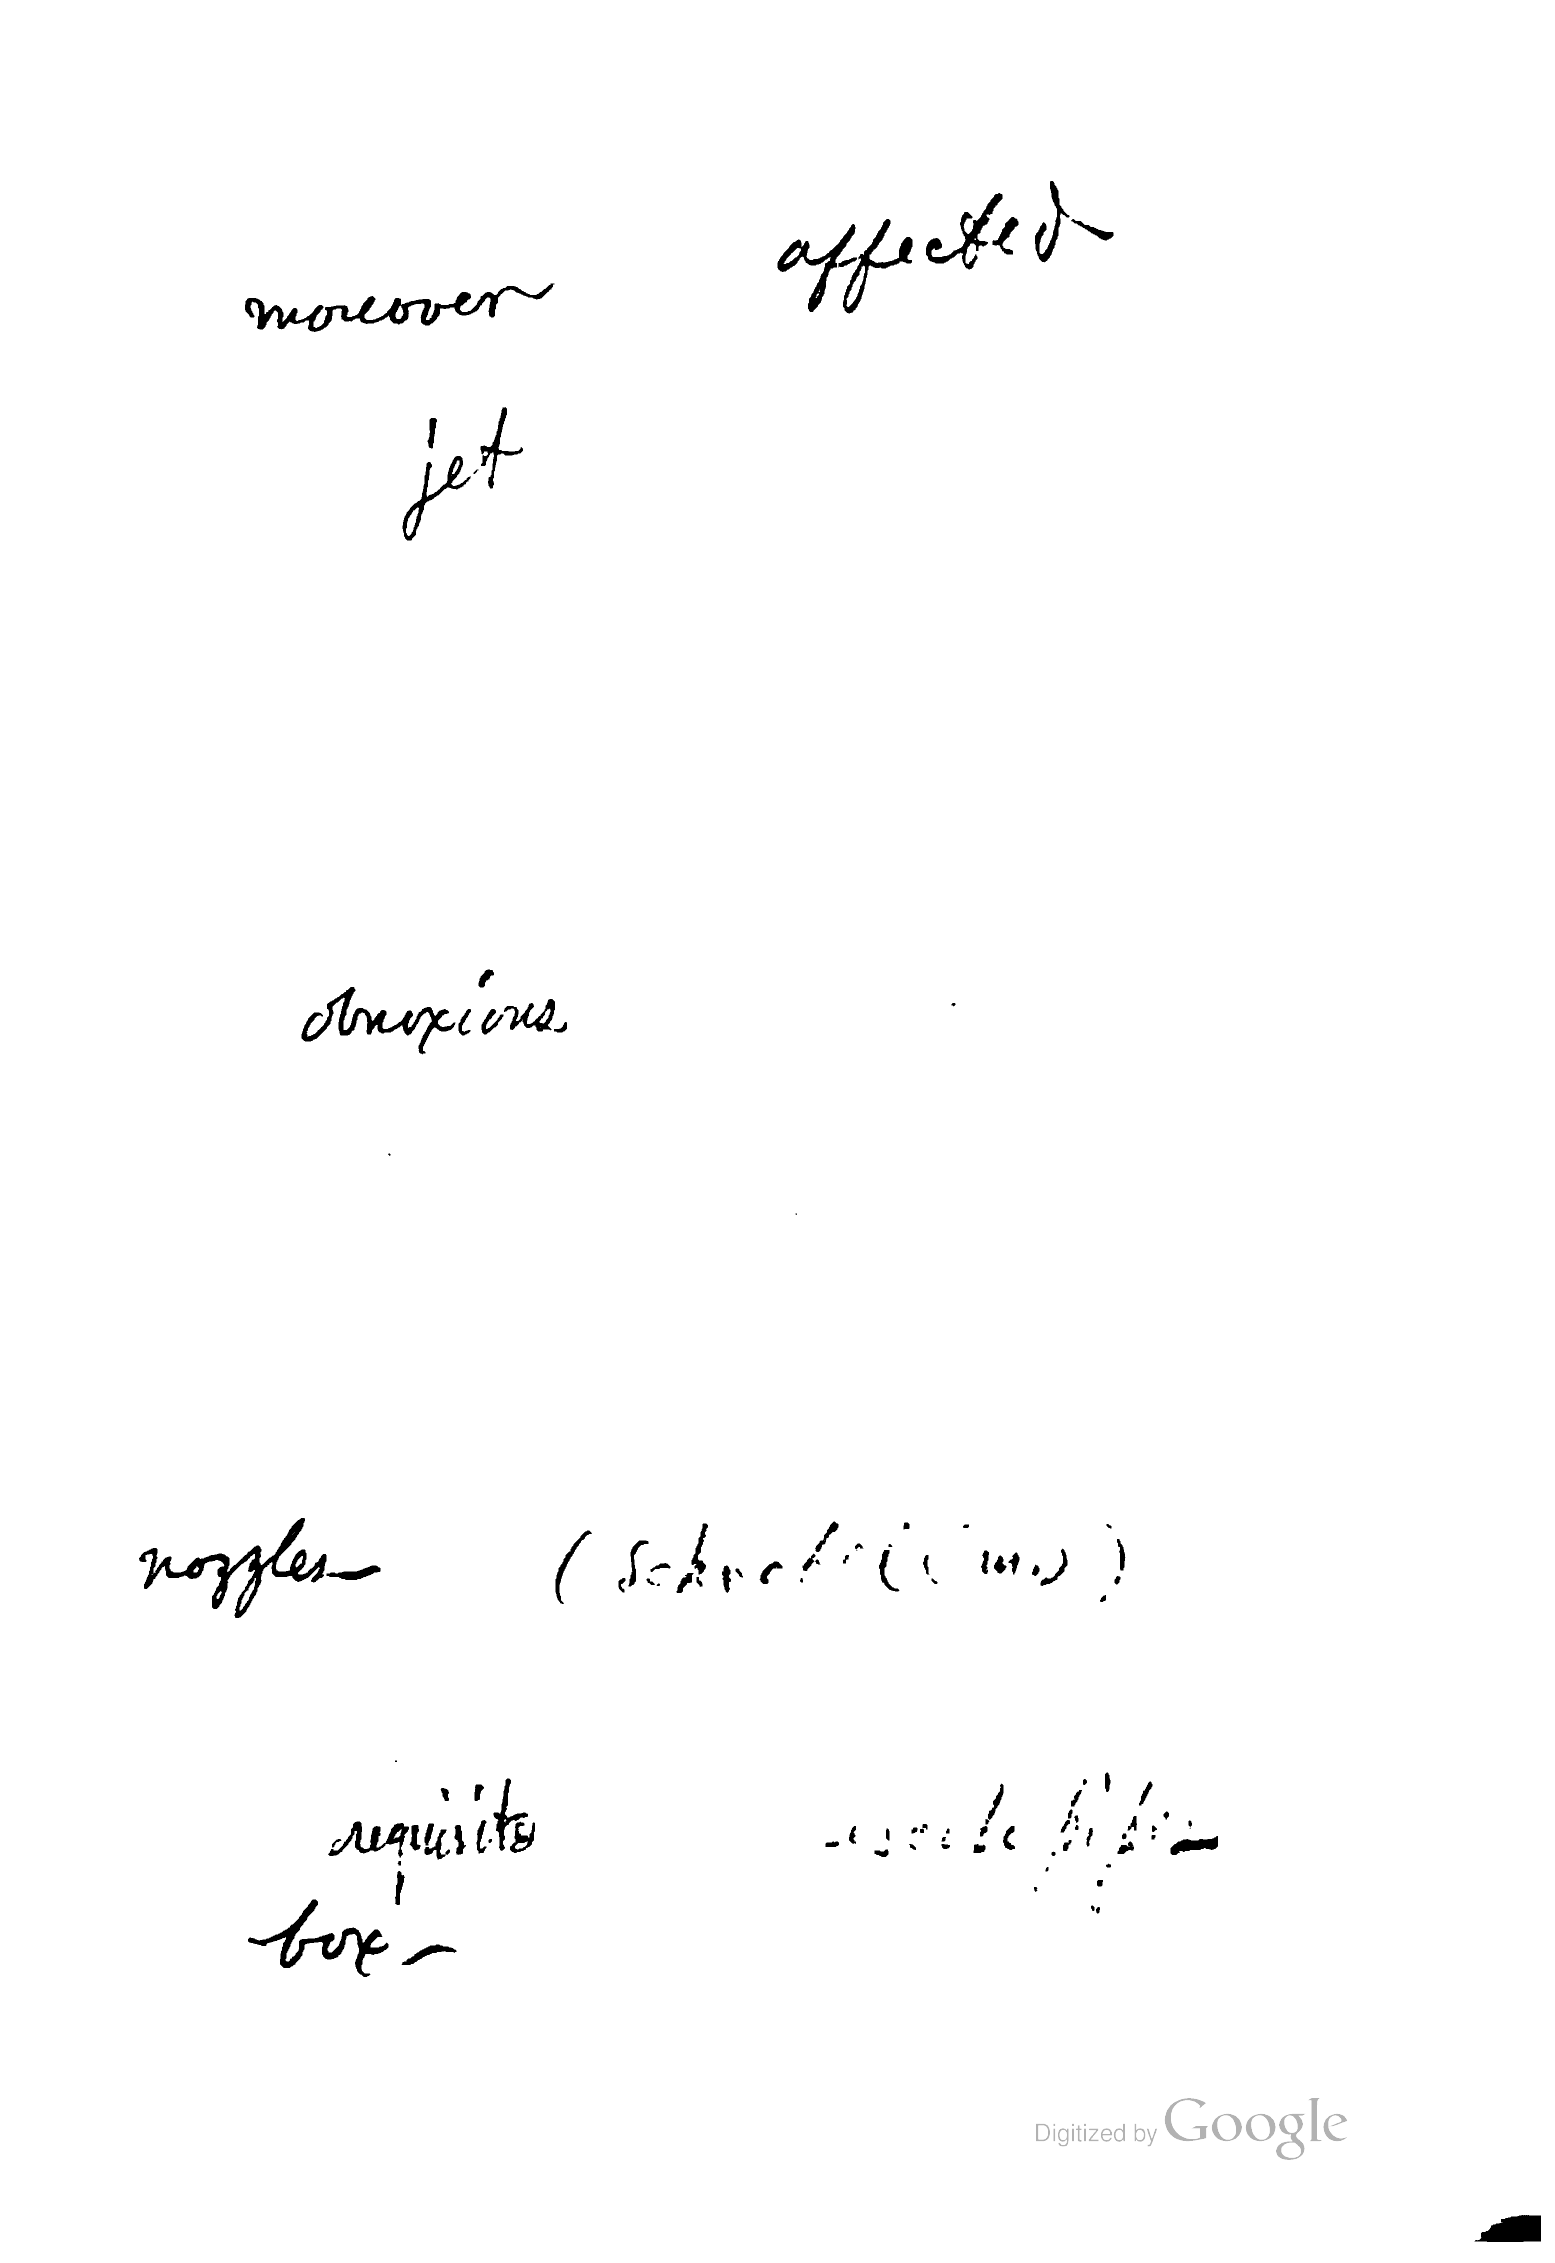 affected
moreover
jet
obnoxious
nozzles
requisite
box
Digitized by Google